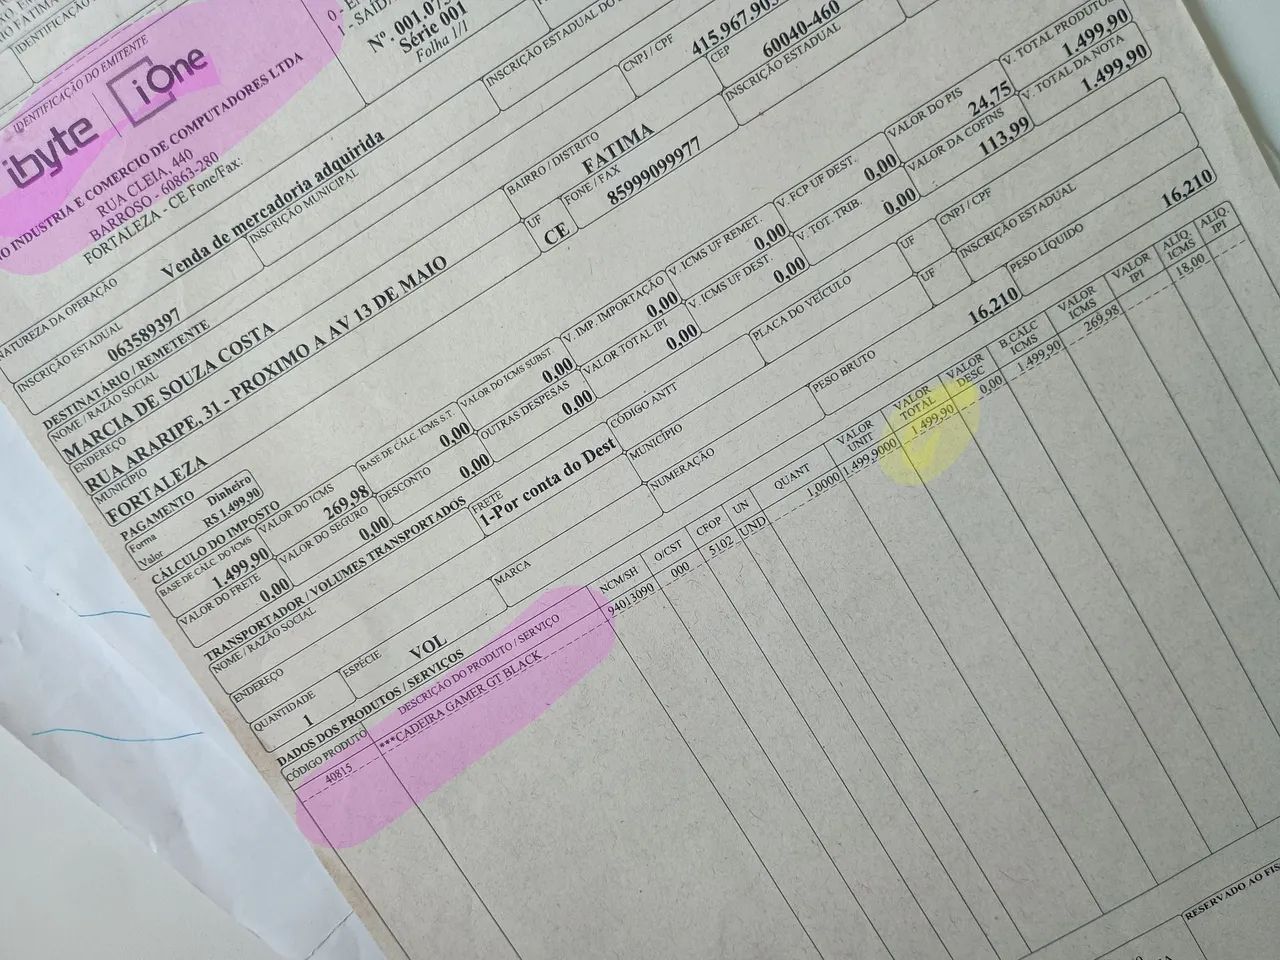 IDENTIFICAÇÃO
Nº. 001.07
Série 001
Folha 1/1
IDENTIFICAÇÃO DO EMITENTE
ibyte iOne
INDUSTRIA E COMERCIO DE COMPUTADORES LTDA
RUA CLEIA, 440
BARROSO - 60863-280
FORTALEZA - CE Fone/Fax:
NATUREZA DA OPERAÇÃO
Venda de mercadoria adquirida
INSCRIÇÃO ESTADUAL
063589397
INSCRIÇÃO MUNICIPAL
INSCRIÇÃO ESTADUAL DO
CNPJ / CPF
415.967.903
DESTINATÁRIO / REMETENTE
NOME / RAZÃO SOCIAL
MARCIA DE SOUZA COSTA
ENDEREÇO
RUA ARARIPE, 31 - PROXIMO A AV 13 DE MAIO
BAIRRO / DISTRITO
FATIMA
CEP
60040-460
MUNICÍPIO
FORTALEZA
UF
CE
FONE / FAX
85999099977
INSCRIÇÃO ESTADUAL
PAGAMENTO
Forma Dinheiro
Valor R$ 1.499,90
CÁLCULO DO IMPOSTO
BASE DE CÁLC DO ICMS
1.499,90
VALOR DO ICMS
269,98
BASE DE CÁLC ICMS S.T.
0,00
VALOR DO ICMS SUBST
0,00
V. IMP. IMPORTAÇÃO
0,00
V. ICMS UF REMET.
0,00
V. FCP UF DEST.
0,00
VALOR DO PIS
24,75
V. TOTAL PRODUTOS
1.499,90
VALOR DO FRETE
0,00
VALOR DO SEGURO
0,00
DESCONTO
0,00
OUTRAS DESPESAS
0,00
VALOR TOTAL IPI
0,00
V. ICMS UF DEST.
0,00
V. TOT. TRIB.
0,00
VALOR DA COFINS
113,99
V. TOTAL DA NOTA
1.499,90
TRANSPORTADOR / VOLUMES TRANSPORTADOS
NOME / RAZÃO SOCIAL
FRETE
1-Por conta do Dest
CÓDIGO ANTT
PLACA DO VEÍCULO
UF
CNPJ / CPF
ENDEREÇO
MUNICÍPIO
UF
INSCRIÇÃO ESTADUAL
QUANTIDADE
1
ESPÉCIE
VOL
MARCA
NUMERAÇÃO
PESO BRUTO
16,210
PESO LÍQUIDO
16,210
DADOS DOS PRODUTOS / SERVIÇOS
CÓDIGO PRODUTO DESCRIÇÃO DO PRODUTO / SERVIÇO NCM/SH O/CST CFOP UN QUANT VALOR UNIT VALOR TOTAL VALOR DESC B.CÁLC ICMS VALOR ICMS VALOR IPI ALÍQ. ICMS ALÍQ. IPI
40815 ***CADEIRA GAMER GT BLACK 94013090 000 5102 UND 1,0000 1.499,9000 1.499,90 0,00 1.499,90 269,98 18,00
RESERVADO AO FIS